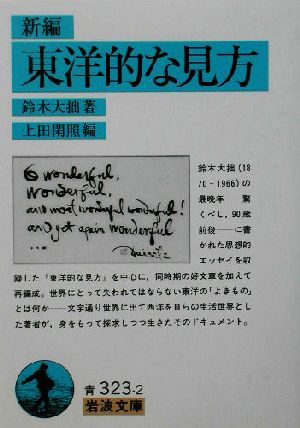 新編
東洋的な見方
鈴木大拙著
上田閑照編
O wonderful,
wonderful,
and most wonderful wonderful!
and yet again wonderful
....
Daisetz
鈴木大拙(18
70-1966)の
最晩年――驚
くべし、90歳
前後――に書
かれた思想的
エッセイを収
録した「東洋的な見方」を中心に、同時期の好文章を加えて
再編成。世界にとって失われてはならない東洋の「よきもの」
とは何か――文字通り世界に出て西洋を自らの生活世界とし
た著者が、身をもって探求しつつ生きたそのドキュメント。
青 323-2
岩波文庫